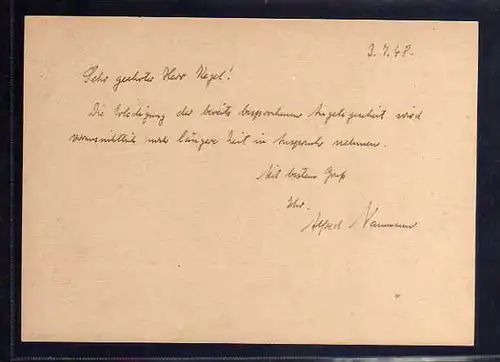 3.7.48.
Sehr geehrter Herr Nagel!
Die Erledigung der bereits besprochenen Angelegenheit wird
voraussichtlich noch längere Zeit in Anspruch nehmen.
Mit bestem Gruß
Ihr
Alfred Naumann